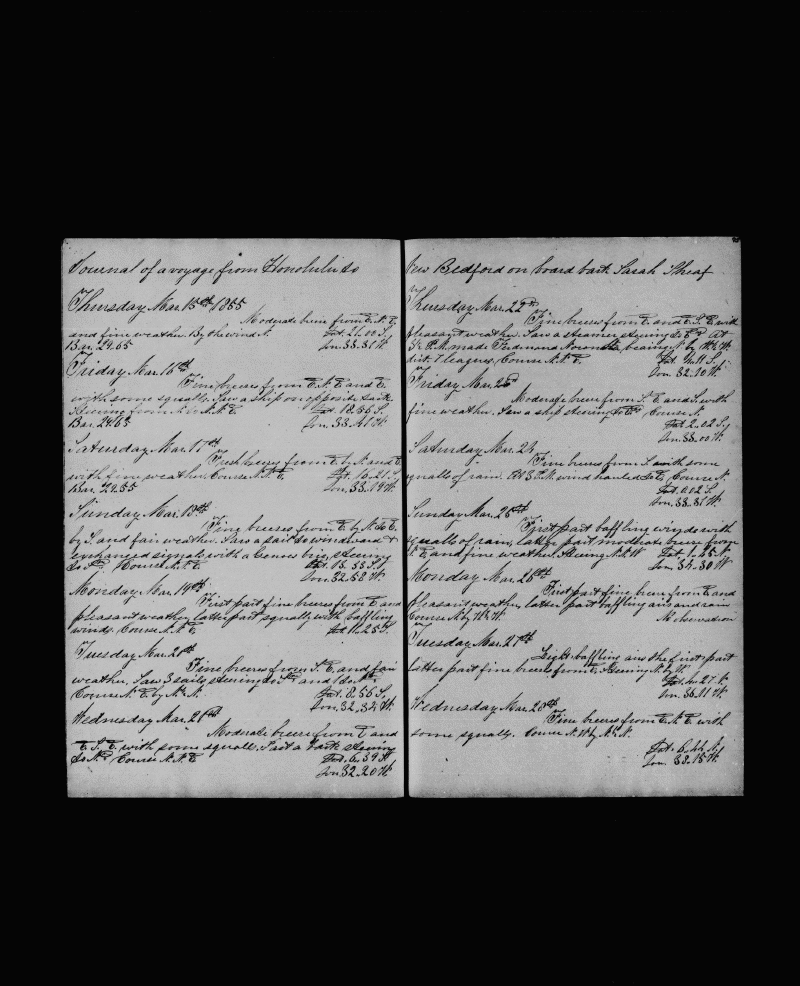 Journal of a voyage from Honolulu to
Thursday Mar. 15th 1855
Moderate breeze from E.N.E.
and fine weather. By the wind N. Lat. 21.00 S.
Bar. 29.65 Lon. 33.31 W.
Friday Mar. 16th
Fine breezes from E.N.E. and E.
with some squalls. Saw a ship on opposite tack
Steering from N. to N.N.E. Lat. 18.36 S.
Bar. Lon. 33.41 W.
Saturday Mar. 17th
Fresh breezes from E. by N. and E.
with fine weather. Course N.N.E. Lat. 15.21 S.
Bar. 29.55 Lon. 33.19 W.
Sunday Mar. 18th
Fine breezes from E. by N. to E.
by S. and fair weather. Saw a sail to windward &
exchanged signals with a brig, steering
to Sd. Course N.N.E. Lat. 13.53 S.
Lon. 32.52 W.
Monday Mar. 19th
First part fine breezes from E. and
pleasant weather, latter part squally with baffling
winds. Course N.N.E. Lat. 11.25 S.
Tuesday Mar. 20th
Fine breezes from S.E. and fair
weather. Saw 3 sails, steering to Sd. and 1 to Nd.
Course N.E. by N. N. Lat. 8.56 S.
Lon. 32.34 W.
Wednesday Mar. 21st
Moderate breezes from E. and
E.S.E. with some squalls. a bark steering
to Nd. Course N.N.E. Lat. 6.39 S.
Lon. 32.20 W.
New Bedford on board bark Sarah Sheaf
Thursday Mar. 22nd
Fine breezes from E. and E.S.E. with
pleasant weather. Saw a steamer steering to Sd. At
P.M. made Ferdinand Noronha bearing N. by W.½W.
dist. 7 leagues, Course N.N.E. Lat. S.
Lon. 32.10 W.
Friday Mar. 23d
Moderate breeze from S.E. and S. with
fine weather. Saw a ship steering to Sd. Course N.
Lat. 2.02 S.
Lon. 33.00 W.
Saturday Mar. 24
Fine breezes from S. with some
squalls of rain. At 3 P.M. wind hauled to E. Course N.
Lat. 0.02 S.
Lon. 33.31 W.
Sunday Mar. 25th
First part baffling winds with
squalls of rain, latter part moderate breeze from
N.E. and fine weather. Steering N.N.W. Lat. 1.45 N.
Lon. 34.30 W.
Monday Mar. 26th
First part fine breeze from E. and
pleasant weather, latter part baffling airs and rain
Course N. by W.½W. No observation
Tuesday Mar. 27th
Light baffling airs the first part
latter part fine breezes from E. Steering N. by W.
Lat. 4.27 N.
Lon. 36.11 W.
Wednesday Mar. 28th
Fine breezes from E.N.E. with
some squally. Course N.W. by N.½N.
Lat. 6.44 N.
Lon. 38.15 W.